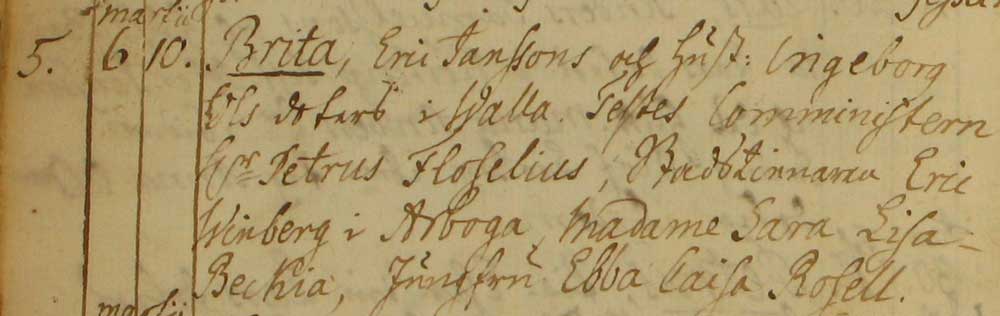 martii
5. 6 10. Brita, Eric Janssons och Hust: Ingeborg
Ols doters i Walla. Testes Comministern
Hr Petrus Floselius, Eric
Winberg i Arboga, Madame Sara Lisa
Beckia, Jungfru Ebba Caisa Rosell.
martii